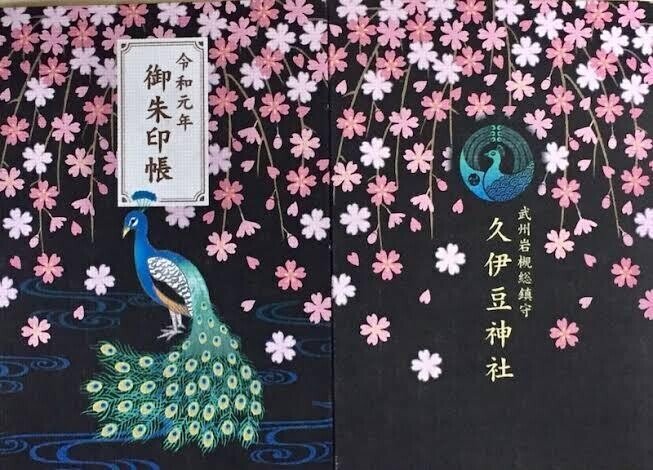 令和元年
御朱印帳
武州岩槻総鎮守
久伊豆神社